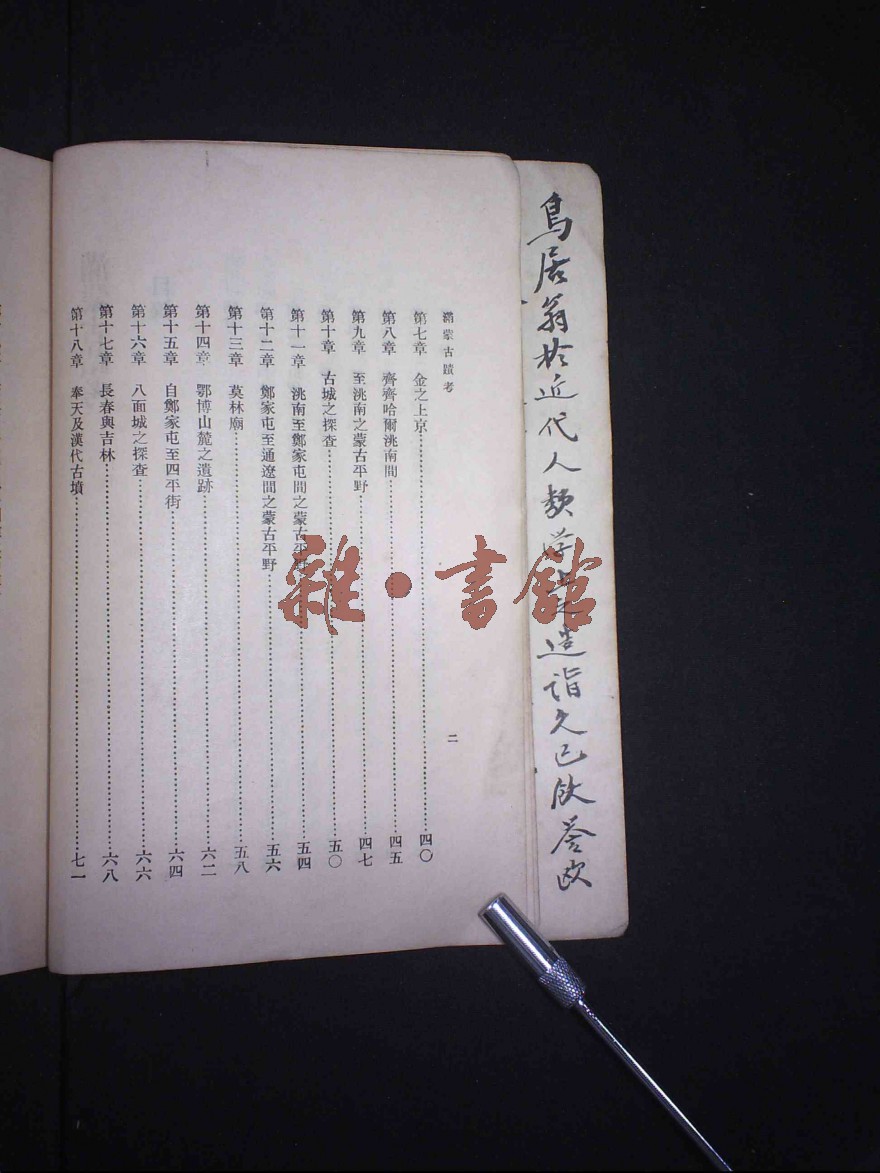 鳥居翁於近代人類学之造詣久已飮誉欧
滿蒙古蹟考
二
第七章 金之上京 四〇
第八章 齊齊哈爾洮南間 四五
第九章 至洮南之蒙古平野 四七
第十章 古城之探查 五〇
第十一章 洮南至鄭家屯間之蒙古平野 五四
第十二章 鄭家屯至通遼間之蒙古平野 五六
第十三章 莫林廟 五八
第十四章 鄂博山麓之遺跡 六二
第十五章 自鄭家屯至四平街 六四
第十六章 八面城之探查 六六
第十七章 長春與吉林 六八
第十八章 奉天及漢代古墳 七一
雜·書館